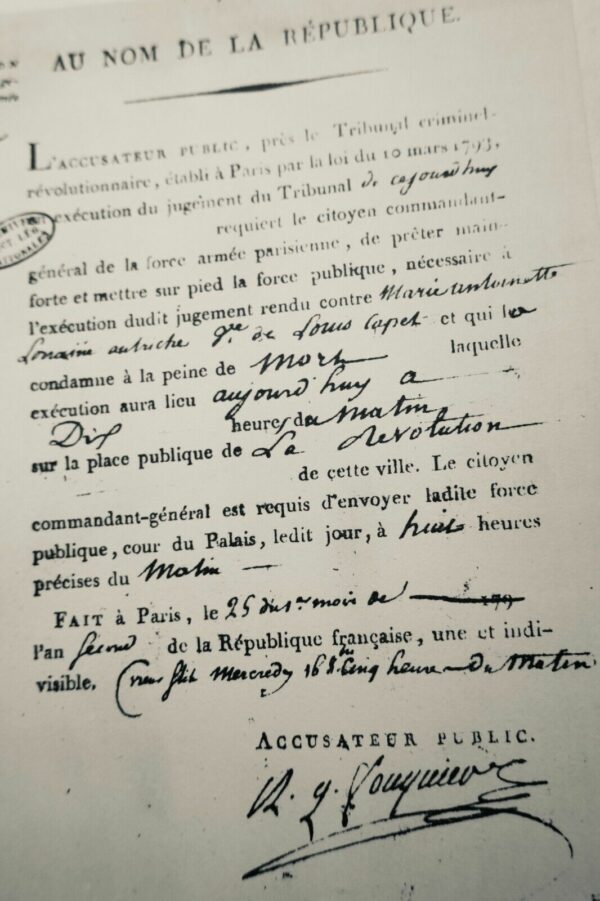 AU NOM DE LA RÉPUBLIQUE.
L'ACCUSATEUR PUBLIC, près le Tribunal criminel-
révolutionnaire, établi à Paris par la loi du 10 mars 1793,
exécution du jugement du Tribunal de cejourd'huy
requiert le citoyen commandant-
général de la force armée parisienne, de prêter main-
forte et mettre sur pied la force publique, nécessaire à
l'exécution dudit jugement rendu contre Marie Antoinette
Lorraine autriche Ve de Louis Capet et qui la
condamne à la peine de Mort laquelle
exécution aura lieu aujourd'huy a
Dix heures du Matin
sur la place publique de La Revolution
de cette ville. Le citoyen
commandant-général est requis d'envoyer ladite force
publique, cour du Palais, ledit jour, à huit heures
précises du Matin
FAIT à Paris, le 25 du 1er mois de 179
l'an second de la République française, une et indi-
visible. (vieux stile Mercredy 16 8bre Cinq heures du Matin
ACCUSATEUR PUBLIC.
A. Q. Fouquier